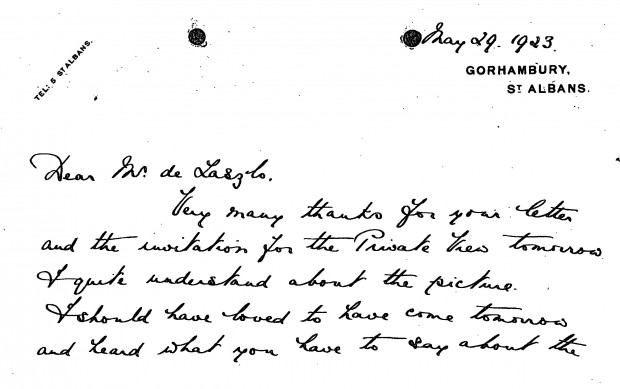 May 29. 1923.
TEL: 5 ST ALBANS.
GORHAMBURY,
ST ALBANS.
Dear Mr. de Laszlo.
Very many thanks for your letter
and the invitation for the Private View tomorrow
I quite understand about the picture.
I should have loved to have come tomorrow
and heard what you have to say about the